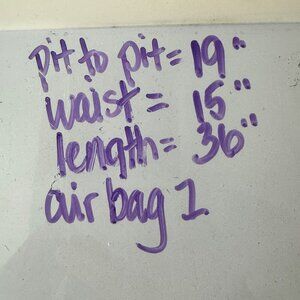 pit to pit= 19"
waist= 15"
length= 36"
air bag 1